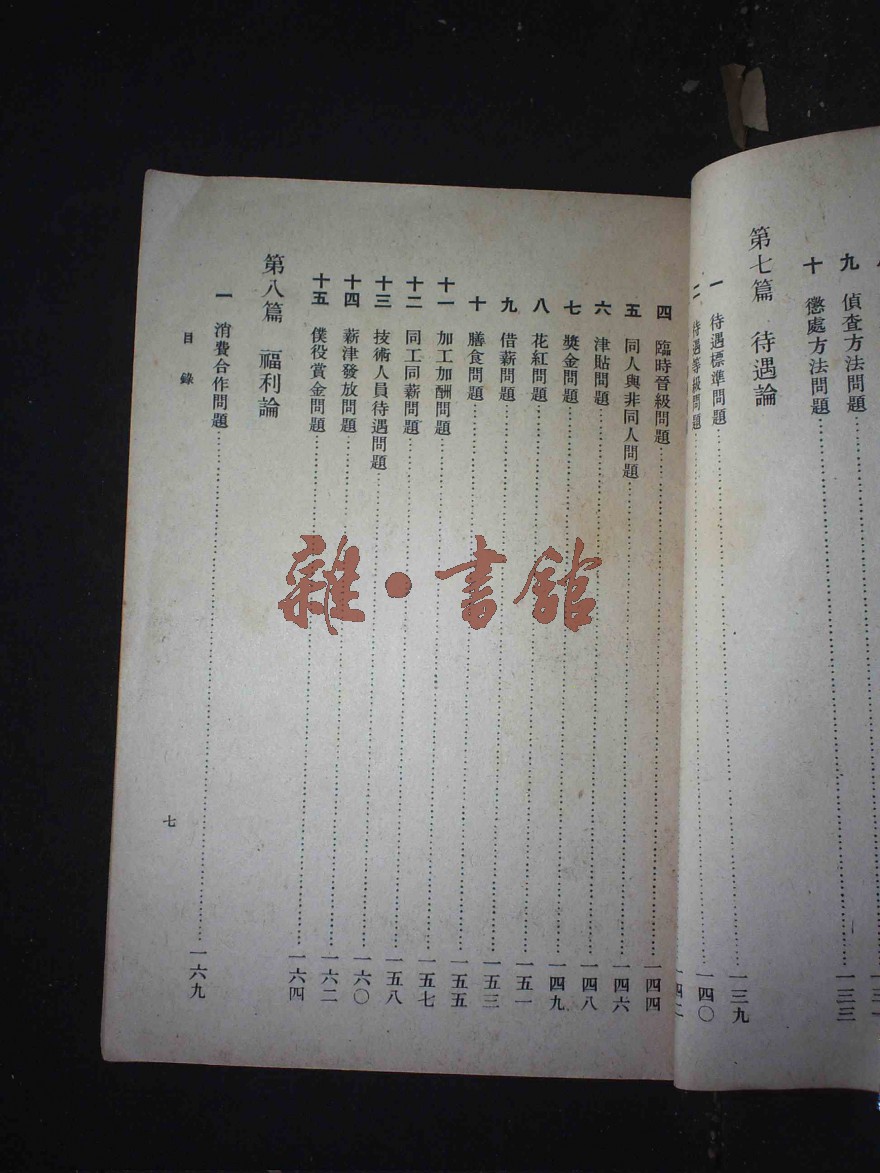 九 偵查方法問題
十 懲處方法問題……一三三
第七篇 待遇論
一 待遇標準問題……一三九
二 待遇等級問題……一四〇
四 臨時晉級問題……一四四
五 同人與非同人問題……一四六
六 津貼問題……一四八
七 獎金問題……一四九
八 花紅問題……一五一
九 借薪問題……一五三
十 膳食問題……一五五
十一 加工加酬問題……一五七
十二 同工同薪問題……一五八
十三 技術人員待遇問題……一六〇
十四 薪津發放問題……一六二
十五 僕役賞金問題……一六四
第八篇 福利論
一 消費合作問題……一六九
目錄
七
雜·書館